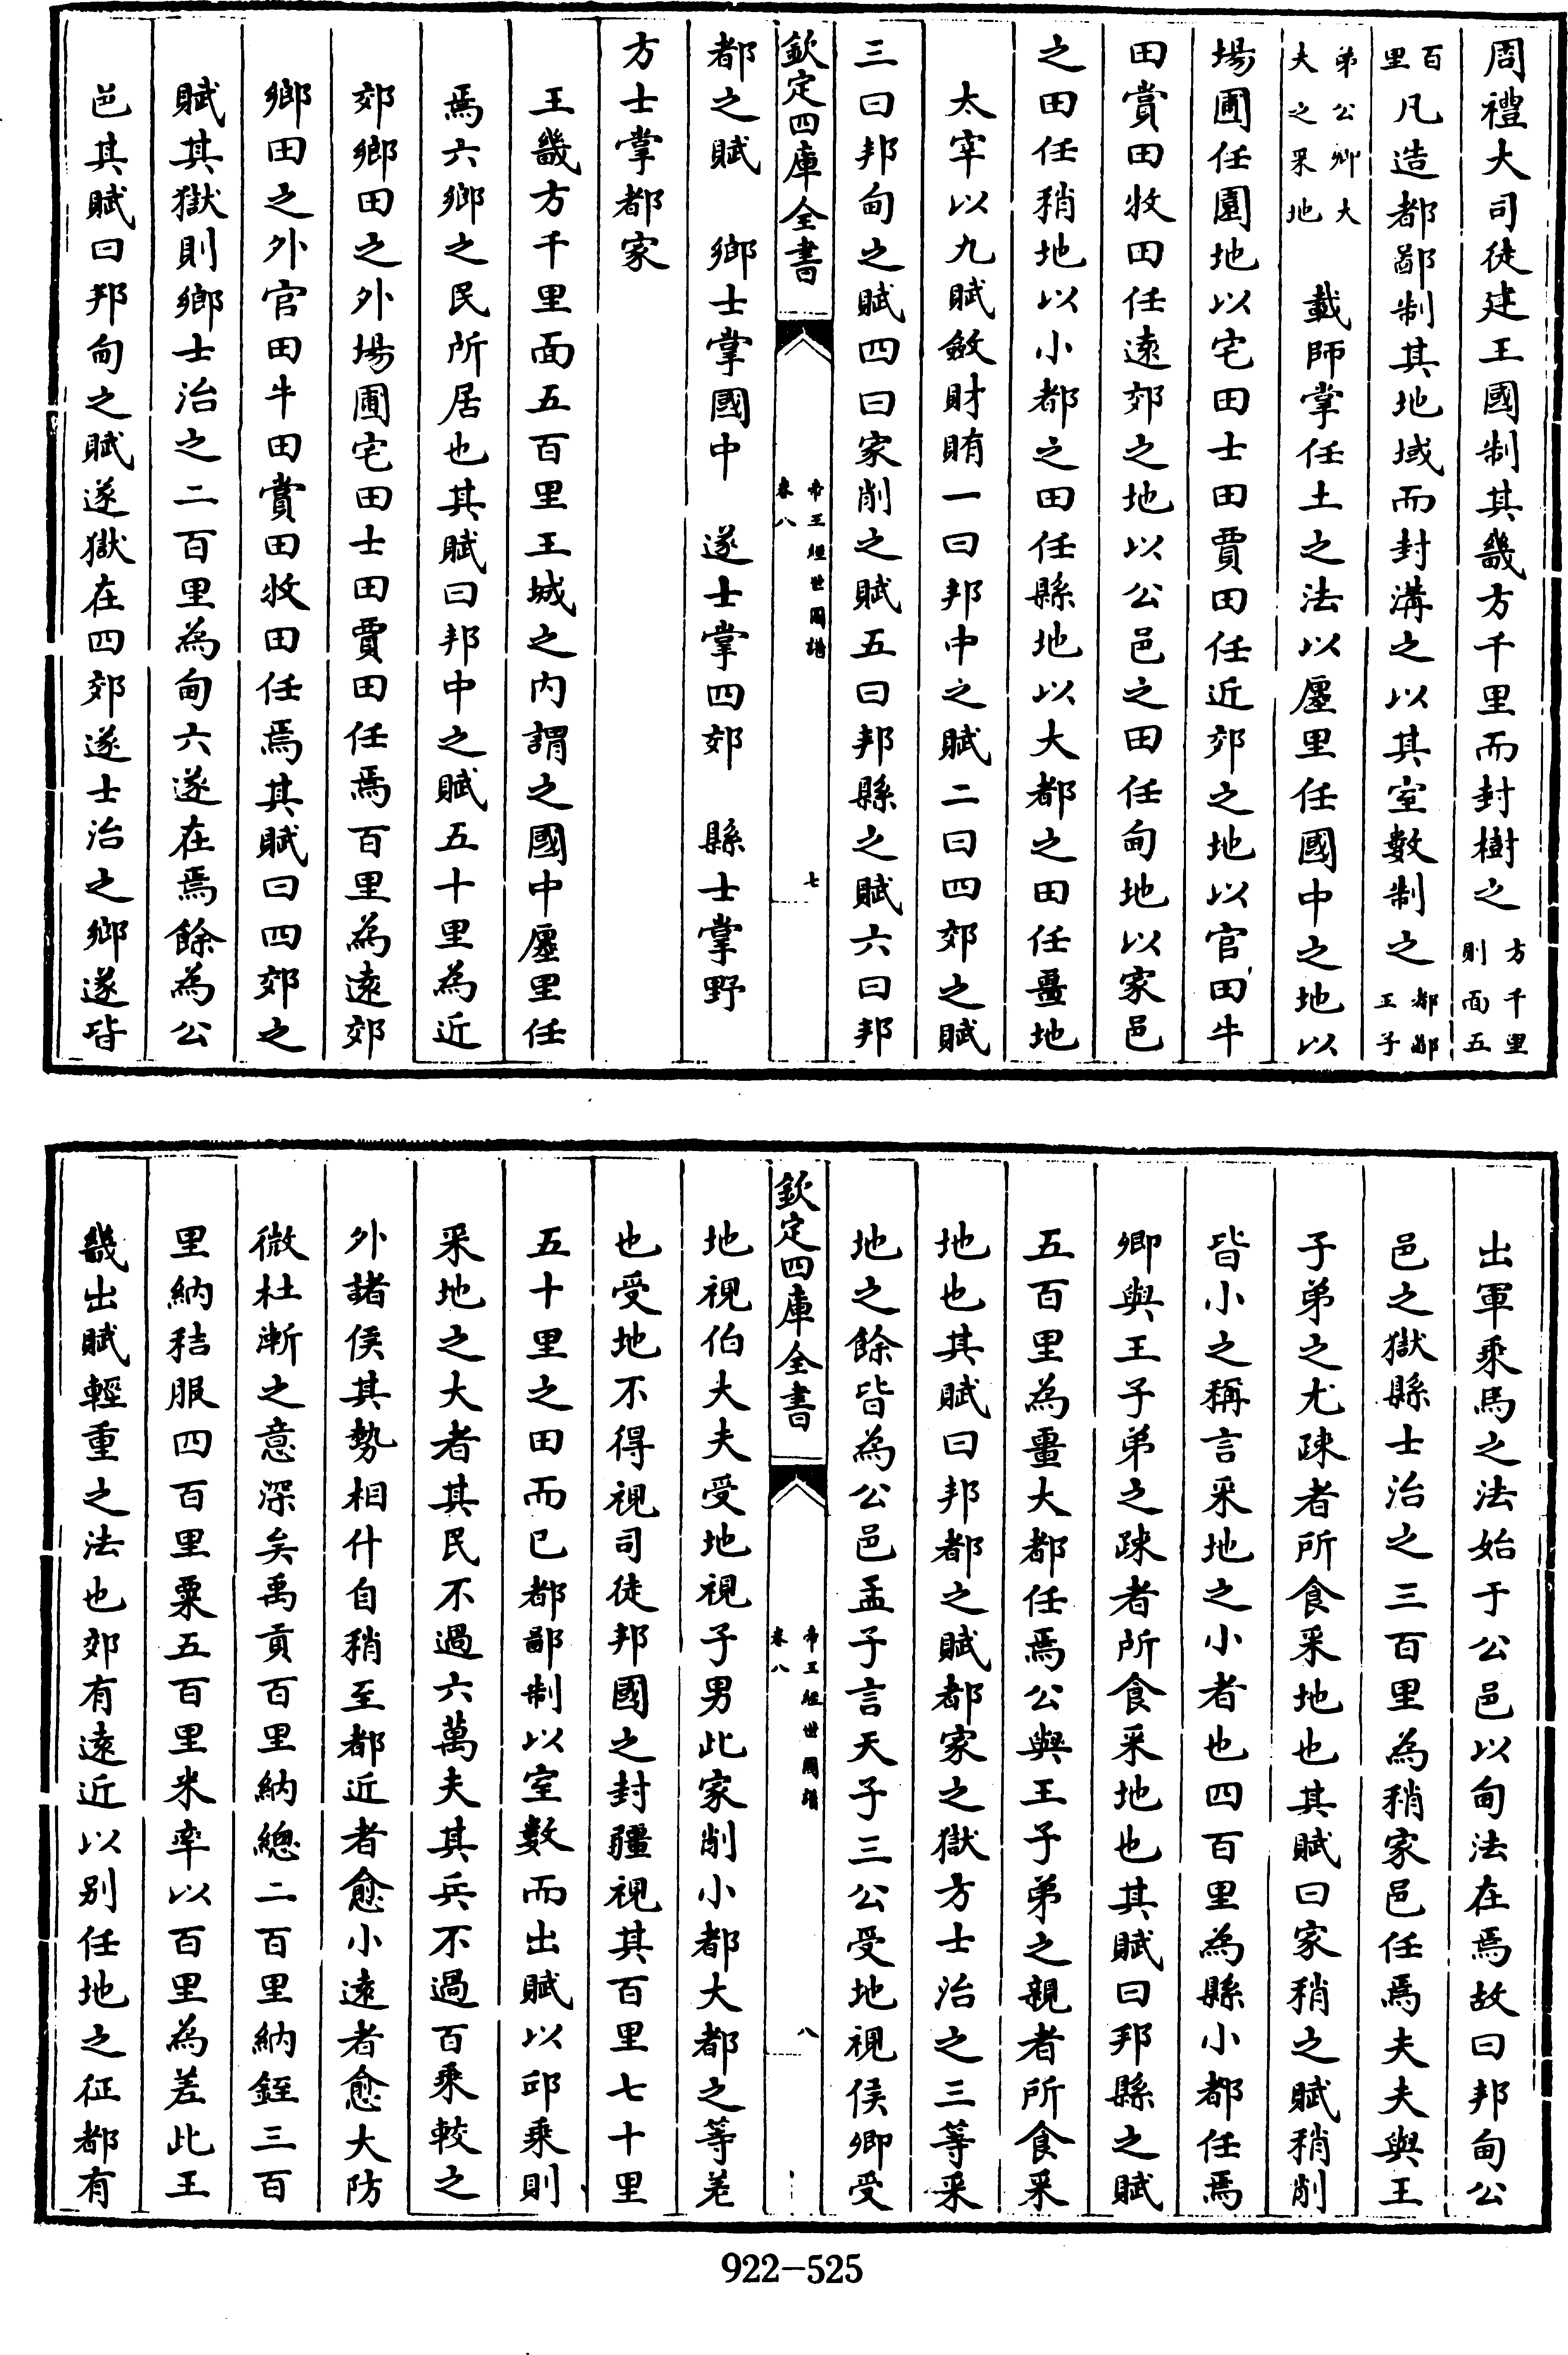 周禮大司徒建王國制其畿方千里而封樹之方千里則面五
百里凡造都鄙制其地域而封溝之以其室數制之都鄙王子
弟公卿大夫之采地　載師掌任土之法以廛里任國中之地以
場圃任園地以宅田士田賈田任近郊之地以官田牛
田賞田牧田任遠郊之地以公邑之田任甸地以家邑
之田任稍地以小都之田任縣地以大都之田任畺地
太宰以九賦斂財賄一曰邦中之賦二曰四郊之賦
三曰邦甸之賦四曰家削之賦五曰邦縣之賦六曰邦
欽定四庫全書　帝王經世圖譜卷八　七
都之賦　鄉士掌國中　遂士掌四郊　縣士掌野
方士掌都家
王畿方千里面五百里王城之内謂之國中廛里任
焉六鄉之民所居也其賦曰邦中之賦五十里為近
郊鄉田之外場圃宅田士田賈田任焉百里為遠郊
鄉田之外官田牛田賞田牧田任焉其賦曰四郊之
賦其獄則鄉士治之二百里為甸六遂在焉餘為公
邑其賦曰邦甸之賦遂獄在四郊遂士治之鄉遂皆
出軍乘馬之法始于公邑以甸法在焉故曰邦甸公
邑之獄縣士治之三百里為稍家邑任焉夫夫與王
子弟之尤疎者所食采地也其賦曰家稍之賦稍削
皆小之稱言采地之小者也四百里為縣小都任焉
卿與王子弟之疎者所食采地也其賦曰邦縣之賦
五百里為畺大都任焉公與王子弟之親者所食采
地也其賦曰邦都之賦都家之獄方士治之三等采
地之餘皆為公邑孟子言天子三公受地視侯卿受
欽定四庫全書　帝王經世圖譜卷八　八
地視伯大夫受地視子男此家削小都大都之等差
也受地不得視司徒邦國之封疆視其百里七十里
五十里之田而已都鄙制以室數而出賦以邱乘則
采地之大者其民不過六萬夫其兵不過百乘較之
外諸侯其勢相什自稍至都近者愈小遠者愈大防
微杜漸之意深矣禹貢百里納總二百里納銍三百
里納秸服四百里粟五百里米率以百里為差此王
畿出賦輕重之法也郊有遠近以别任地之征都有
922-525